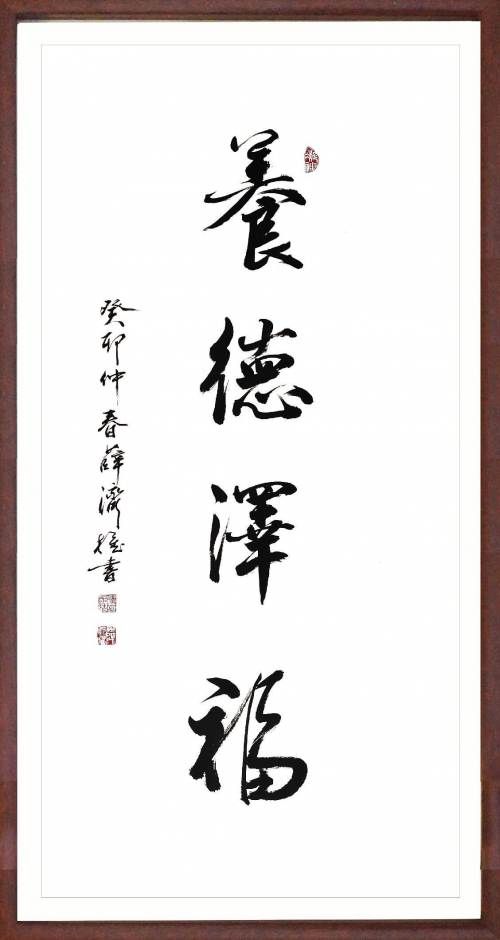 養德澤福
癸卯仲春薛濟榕書